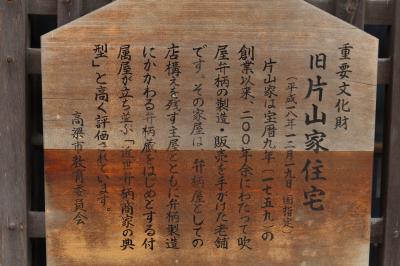 重要文化財
旧片山家住宅
(平成一八年一二月一九日 国指定)
片山家は宝暦九年(一七五九)の
創業以来、二〇〇年余にわたって吹
屋弁柄の製造・販売を手がけた老舗
です。その家屋は、弁柄屋としての
店構えを残す主屋とともに弁柄製造
にかかわる弁柄蔵をはじめとする付
属屋が立ち並ぶ「近世弁柄商家の典
型」と高く評価されています。
高梁市教育委員会